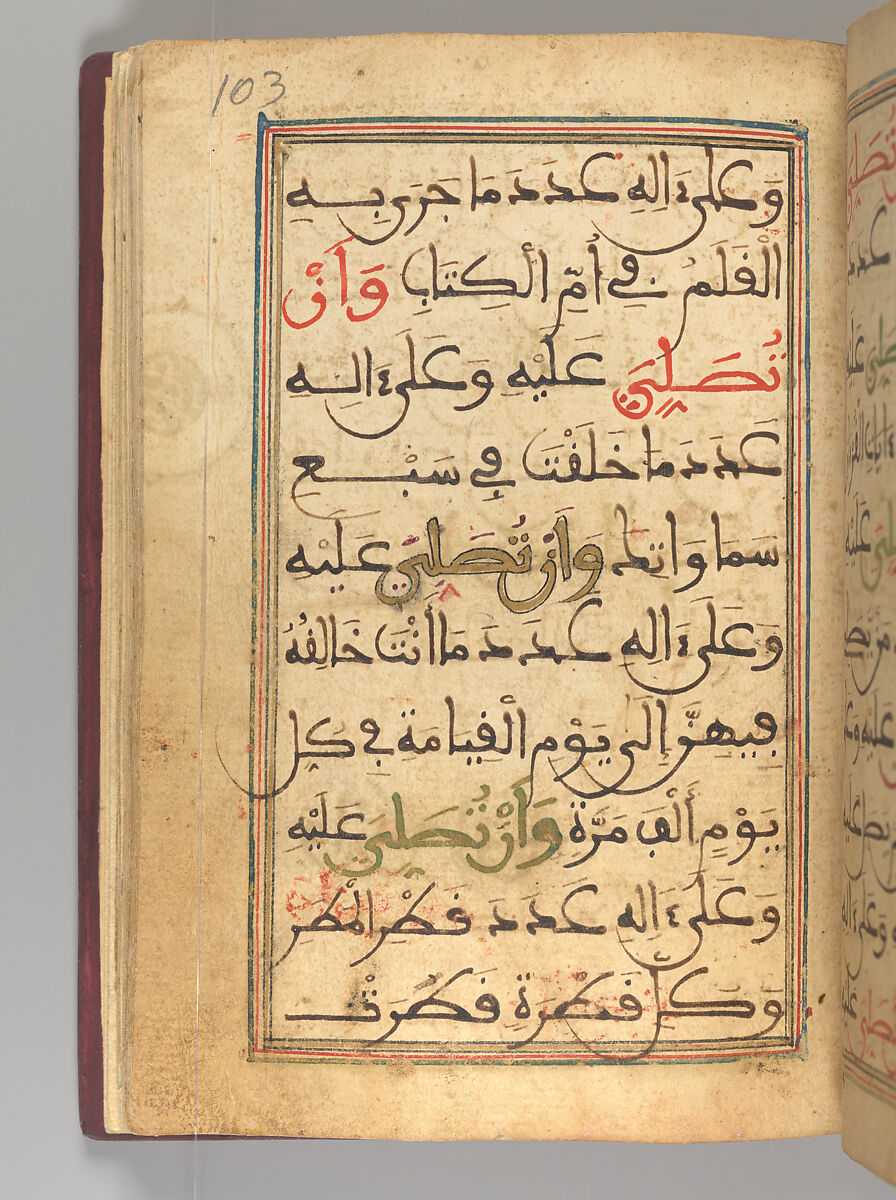 103
وَعَلَىٰ ءَالِهِ عَدَدَ مَا جَرَىٰ بِهِ
الْقَلَمُ فِي أُمِّ الْكِتَابِ وَأَنْ
تُصَلِّيَ عَلَيْهِ وَعَلَىٰ ءَالِهِ
عَدَدَ مَا خَلَقْتَ فِي سَبْعِ
سَمَاوَاتِكَ وَأَنْ تُصَلِّيَ عَلَيْهِ
وَعَلَىٰ ءَالِهِ عَدَدَ مَا أَنْتَ خَالِقُهُ
فِيهِنَّ إِلَىٰ يَوْمِ الْقِيَامَةِ فِي كُلِّ
يَوْمٍ أَلْفَ مَرَّةٍ وَأَنْ تُصَلِّيَ عَلَيْهِ
وَعَلَىٰ ءَالِهِ عَدَدَ قَطْرِ الْمَطَرِ
وَكُلِّ قَطْرَةٍ قَطَرَتْ